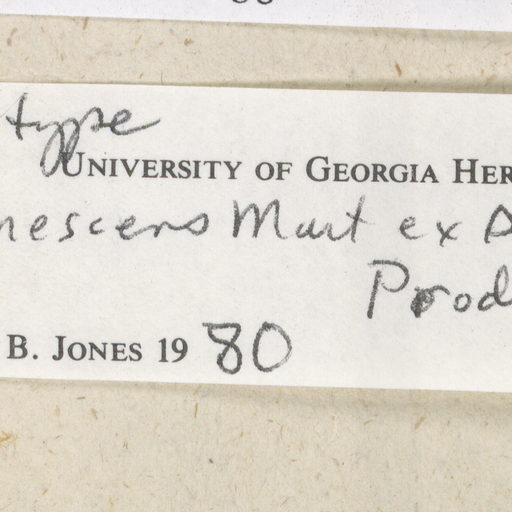 type
UNIVERSITY OF GEORGIA HER
nescens Mart ex D
Prod
B. JONES 19 80